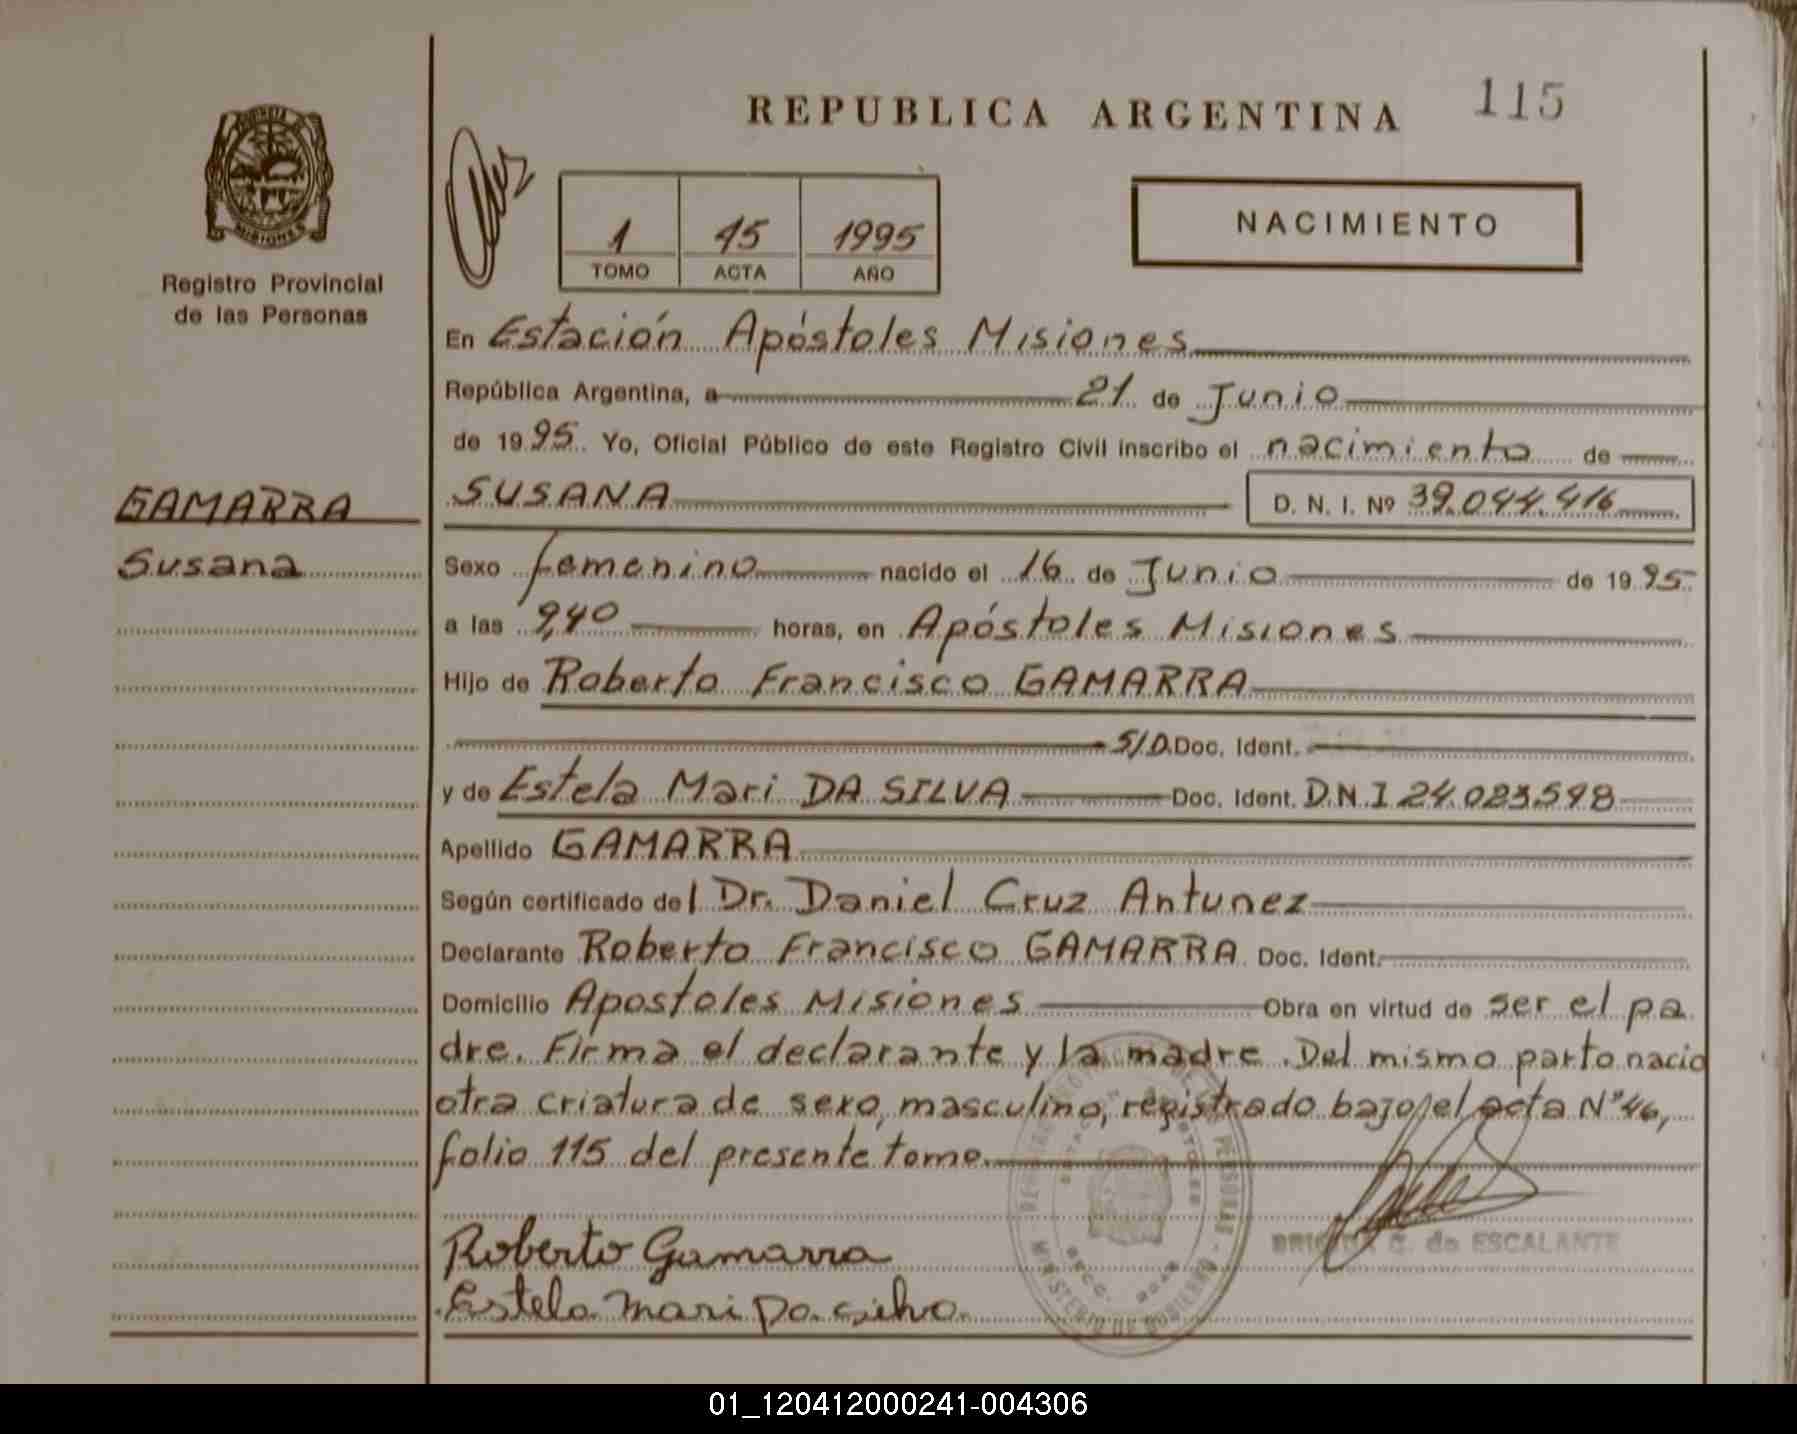 REPUBLICA ARGENTINA 115
PROVINCIA DE MISIONES
Registro Provincial
de las Personas
1 45 1995
TOMO ACTA AÑO
NACIMIENTO
En Estación Apóstoles Misiones
República Argentina, a 21 de Junio
de 1995 Yo, Oficial Público de este Registro Civil inscribo el nacimiento de
GAMARRA
Susana
SUSANA D. N. I. Nº 39.044.416
Sexo femenino nacido el 16 de Junio de 1995
a las 9,40 horas, en Apóstoles Misiones
Hijo de Roberto Francisco GAMARRA
S/D. Doc. Ident.
y de Estela Mari DA SILVA Doc. Ident. D.N.I 24.023.598
Apellido GAMARRA
Según certificado del Dr. Daniel Cruz Antunez
Declarante Roberto Francisco GAMARRA Doc. Ident.
Domicilio Apostoles Misiones Obra en virtud de ser el pa
dre. Firma el declarante y la madre. Del mismo parto nacio
otra criatura de sexo, masculino, registrado bajo el acta N° 46,
folio 115 del presente tomo.
Roberto Gamarra
Estela Mari Da Silva.
BRIGIDA G. de ESCALANTE
01_120412000241-004306